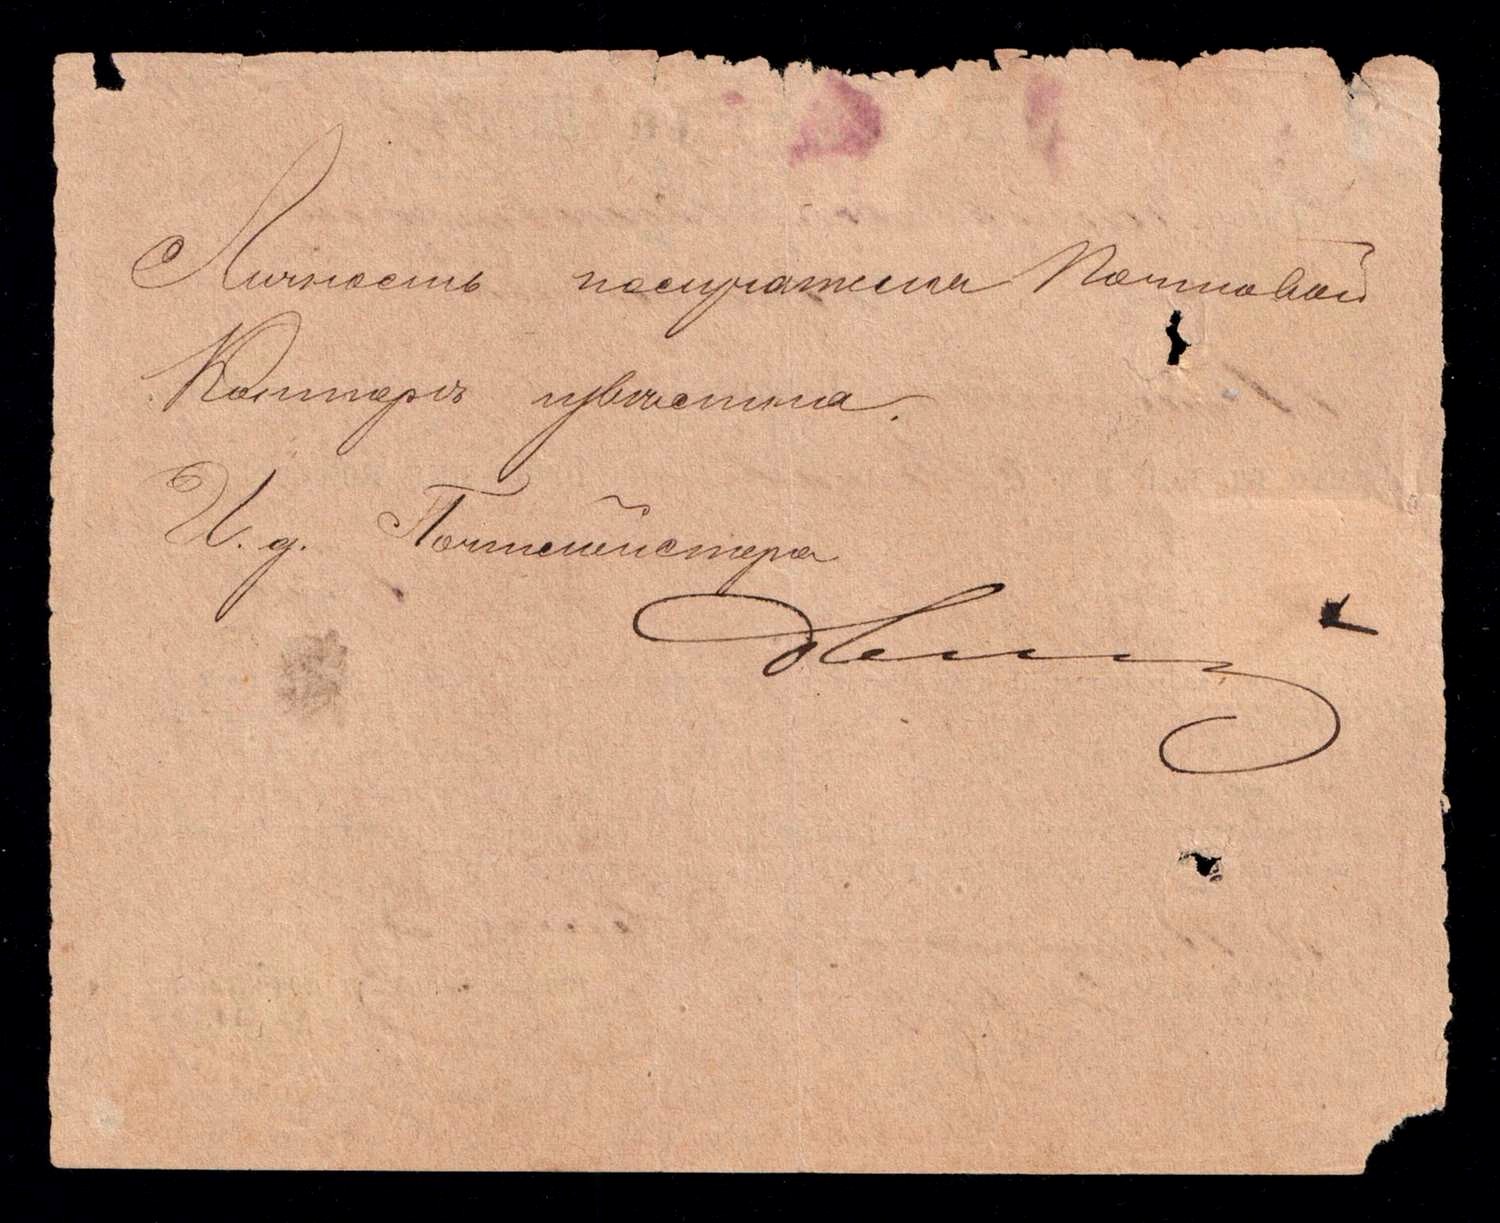 Личность получателя Почтовой
Конторѣ извѣстна.
И. д. Почтмейстера